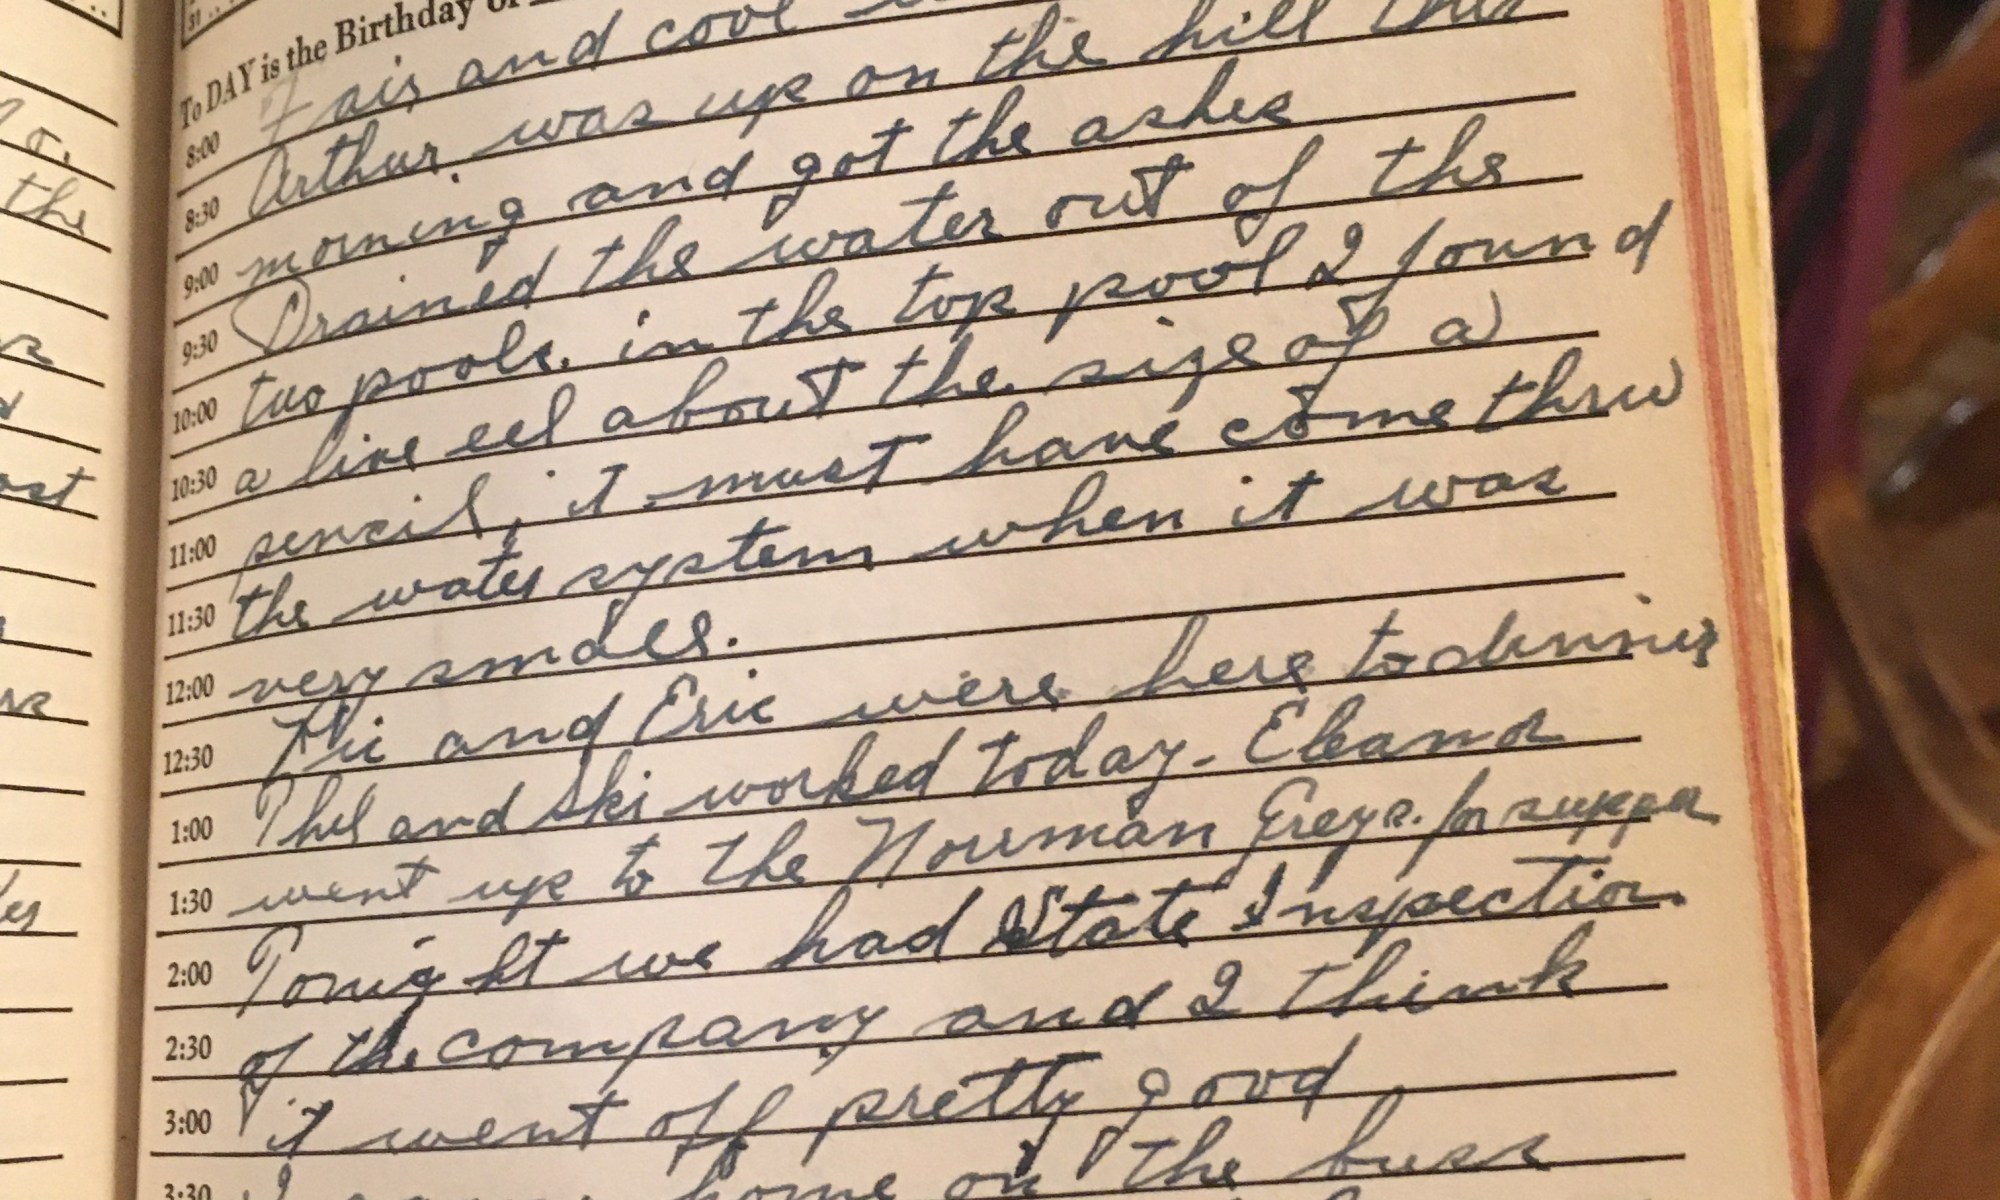 To DAY is the Birthday of
8:00 Fair and cool
8:30 Arthur was up on the hill this
9:00 morning and got the ashes
9:30 Drained the water out of the
10:00 two pools. in the top pool I found
10:30 a live eel about the size of a
11:00 pencil, it must have come thru
11:30 the water system when it was
12:00 very small.
12:30 and Eric were here to dinner
1:00 Phil and Ski worked today - Eleanor
1:30 went up to the Norman Greys. for supper
2:00 Tonight we had State Inspection
2:30 of the company and I think
3:00 it went off pretty good
3:30 home on the buss
31
the